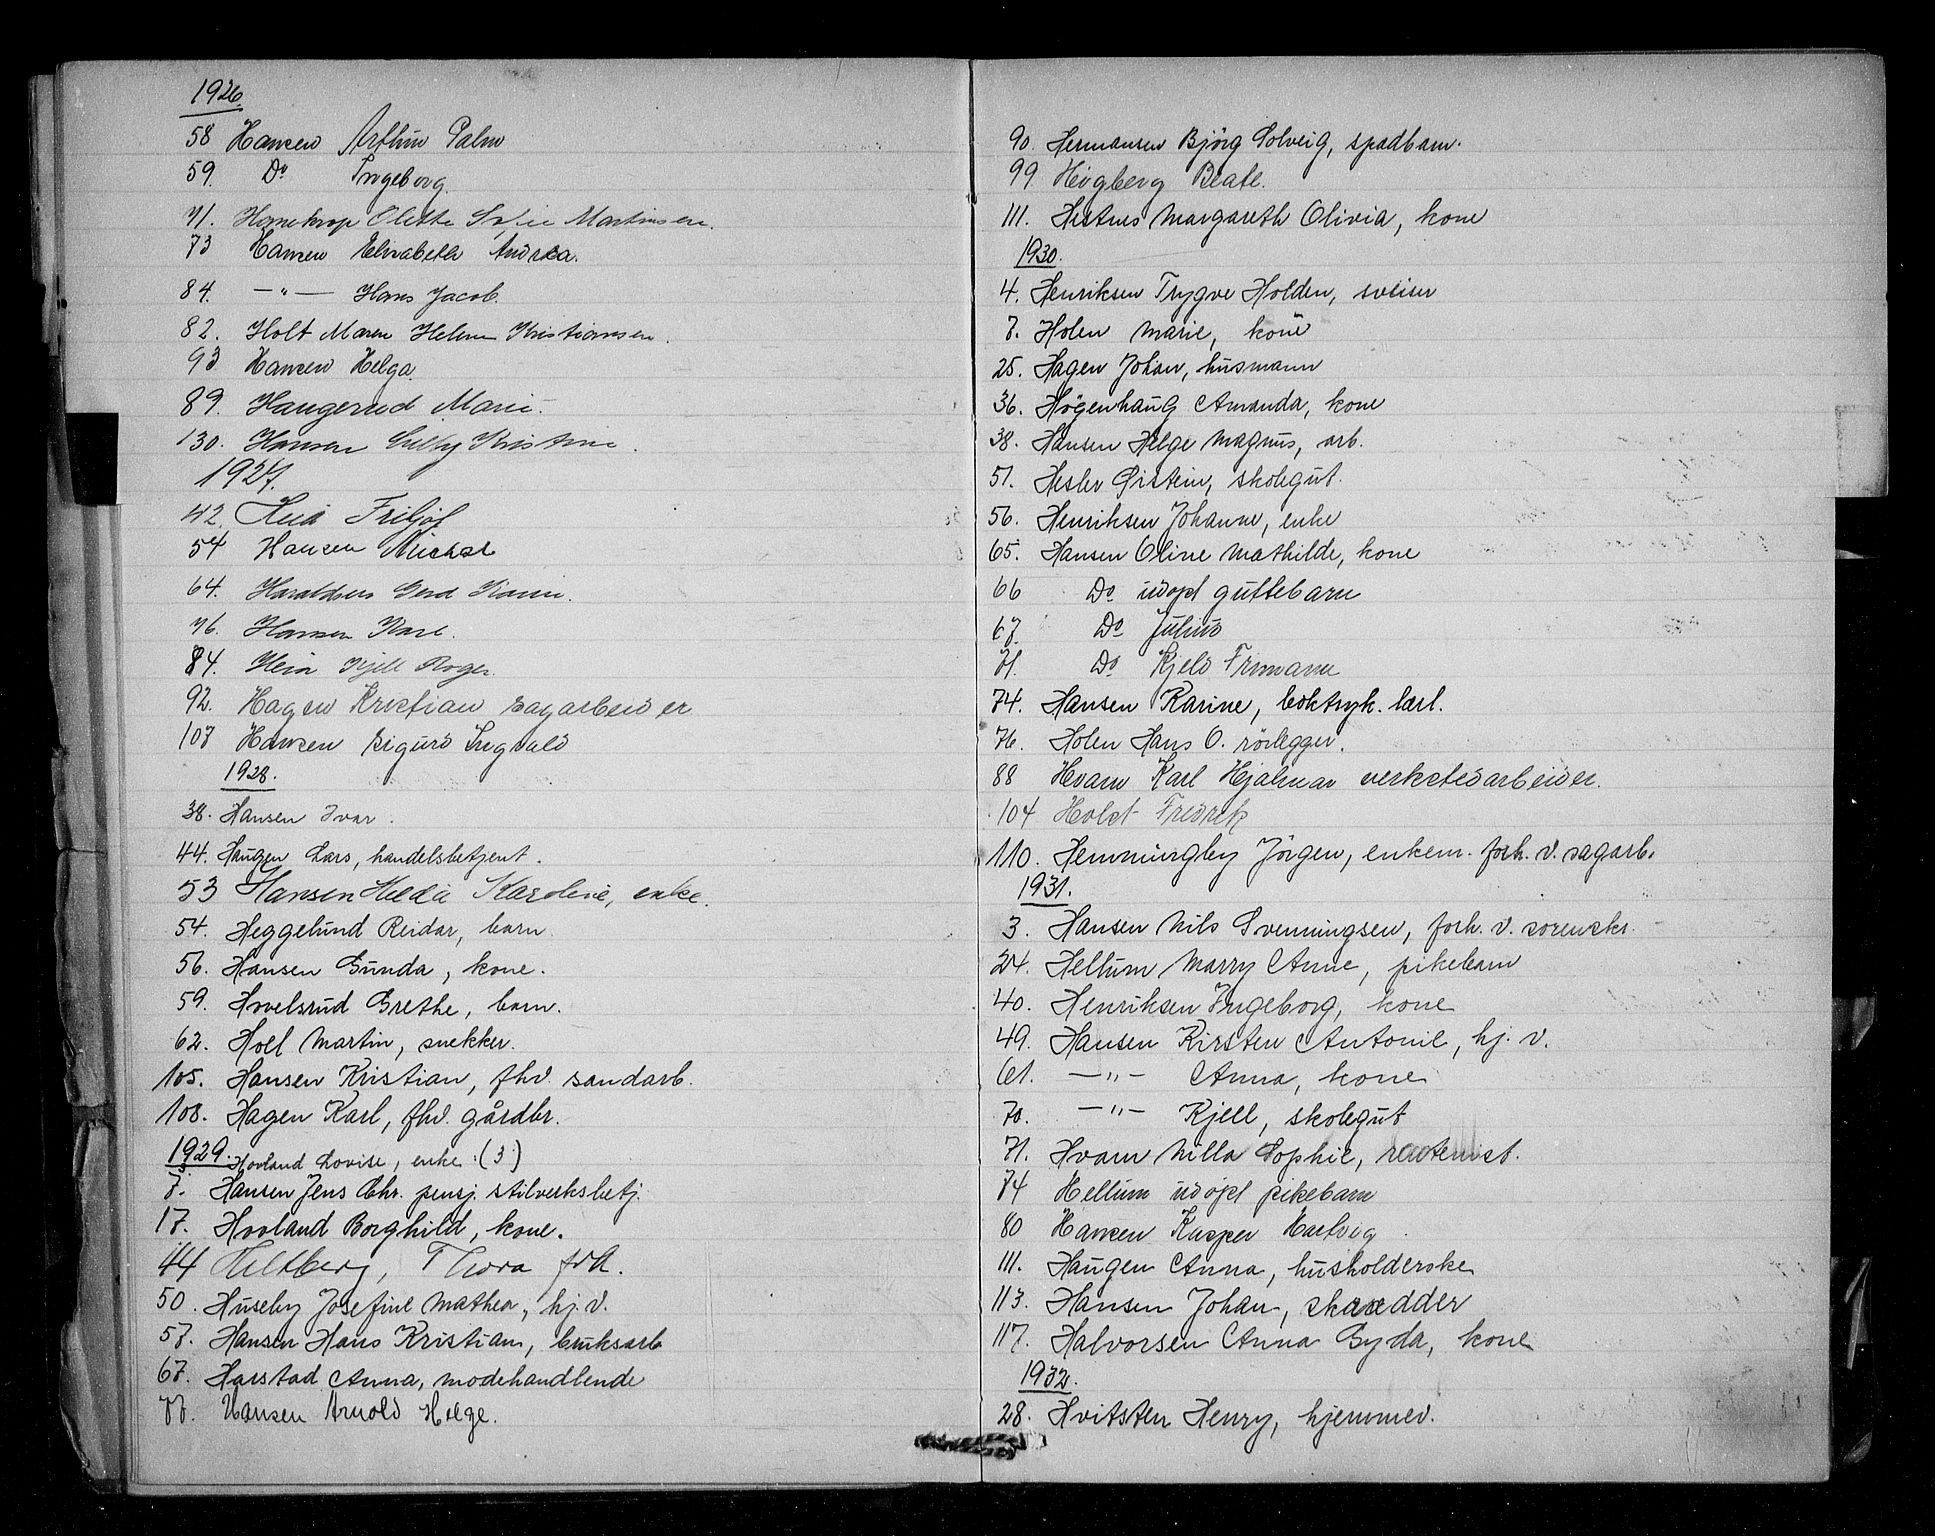 1926
58 Hansen Arthur Palm
59. Do Ingeborg.
71. Olette Sofie Martinsen.
73 Hansen Elisabeth Andrea.
84. —"— Hans Jacob.
82. Holt Maren Helene Kristiansen.
93 Hansen Helga.
89. Haugerud Marie.
130. Hansen Kristine.
1927.
42. Heia Fritjof
54 Hansen Michal
64. Haraldsen Gerd Karin.
76. Hansen Karl.
84. Hein Kjell Roger.
92. Hagen Kristian sagarbeider
107 Hansen Sigurd Ingvald
1928.
38. Hansen Ivar.
44. Haugen Lars, handelsbetjent.
53 Hansen Hilda Karoline, enke.
54. Heggelund Reidar, barn.
56. Hansen Gunda, kone.
59. Hovelsrud Grethe, barn.
62. Hoel Martin, snekker.
105. Hansen Kristian, fhv. sandarb.
108. Hagen Karl, fhv. gårdbr.
1929. Hovland Lovise, enke (3)
7. Hansen Jens Chr. pensj. stilverksbetj.
17. Hovland Borghild, kone.
44 Heltberg, Thora frk.
50. Huseby Josefine Mathea, hj. v.
57. Hansen Hans Kristian, bruksarb
67. Harstad Anna, modehandlende
77. Hansen Arnold Helge.
90. Hermansen Bjørg Solveig, spædbarn.
99. Høgberg Beate.
111. Hestnes Margareth Olivia, kone
1930.
4. Henriksen Trygve Holden, sveiser
7. Holen Marie, kone
25. Hagen Johan, husmann
36. Høgenhaug Amanda, kone
38. Hansen Helge Magnus, arb.
51. Hesler Øistein, skolegut.
56. Henriksen Johanne, enke
65. Hansen Oline Mathilde, kone
66 Do udøpt guttebarn
67. Do Julius
71. Do Kjeld Fremann
74. Hansen Karine, boktryk. lærl.
76. Holen Hans O. rørlegger.
88 Hvam Karl Hjalmar verkstedarbeider.
104 Holst Fredrik
110. Hemmingby Jørgen, enkem. forh. v. sagarb.
1931.
3. Hansen Nils Svenningsen, forh. v. sorenskr.
24. Hellum Marry Anne, pikebarn
40. Henriksen Ingeborg, kone
49. Hansen Kirsten Antonie, hj. v.
61. —"— Anna, kone
70. —"— Kjell, skolegut
71. Hvam Milla Sophie,
74 Hellum udøpt pikebarn
80 Hansen Kasper Hartvig
111. Haugen Anna, husholderske
113. Hansen Johan, skrædder
117. Halvorsen Anna Gyda, kone
1932.
28. Hvitsten Henry, hjemmev.